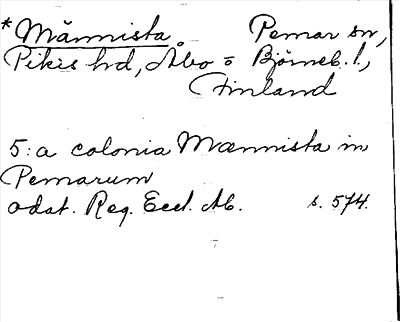 * Männista Pemar sn,
Pikis hd, Åbo = Björneb. l.,
Finland
5: a colonia Mœnnista in
Pemarum
odat. Reg. Eccl. Ab. s. 574.